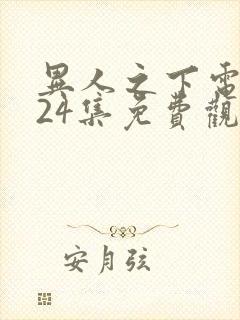 異人之下電
24集免費觀
安月弦